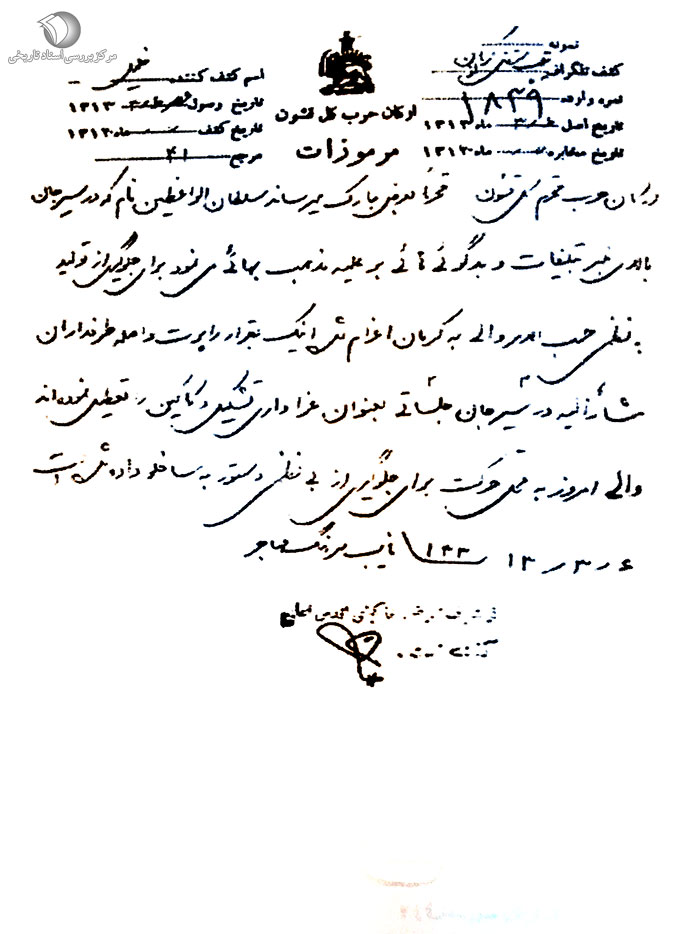 مرکز بررسی اسناد تاریخی
نمونه
کشف تلگراف
نمره وارده ۱۸۳۹
تاریخ اصل ۶ ماه ۳ ۱۳۱۳
تاریخ مخابره ماه ۱۳۱۳
ارکان حرب کل قشون
مرموزات
اسم کشف کننده
تاریخ وصول ۱۳۱۳
تاریخ کشف ماه ۱۳۱۳
مرجع ۴۱
ارکان حرب کل قشون محترماً بعرض مبارک میرساند سلطان الواعظین نام که در سیرجان
بالای منبر تبلیغات و بدگوئی هائی بر علیه مذهب بهائی می نمود برای جلوگیری از تولید
بی نظمی حسب الامر والی به کرمان اعزام شده اینک بقرار راپورت واصله طرفداران
مشارالیه در سیرجان جلساتی بعنوان عزاداری تشکیل و دکاکین را تعطیل نموده اند
والی امروز به محل حرکت برای جلوگیری از بی نظمی دستور به ساخلو داده شده است
۶ ر ۳ ر ۱۳ ۱۴۳ نایب سرهنگ مهاجر